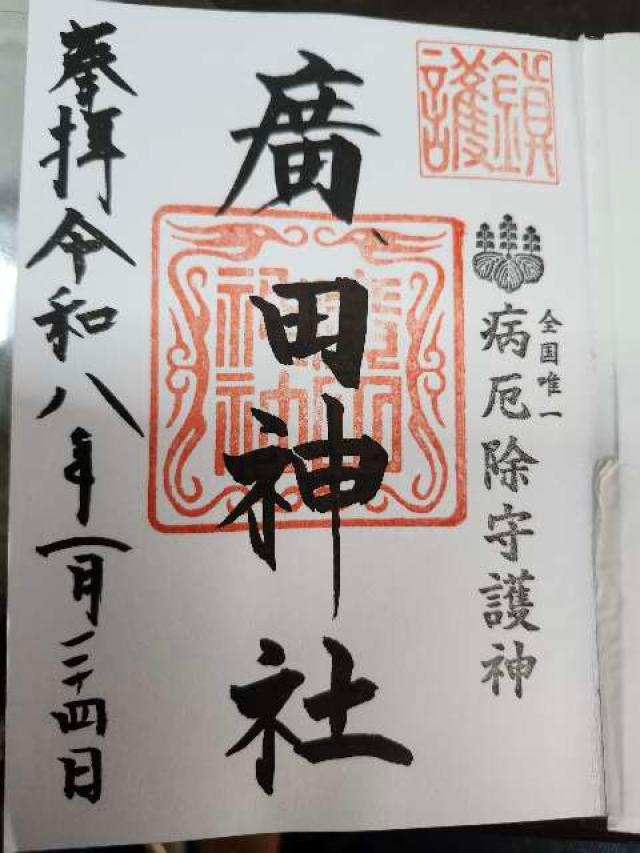 鎮護
全国唯一
病厄除守護神
廣田神社
奉拝令和八年一月二十四日